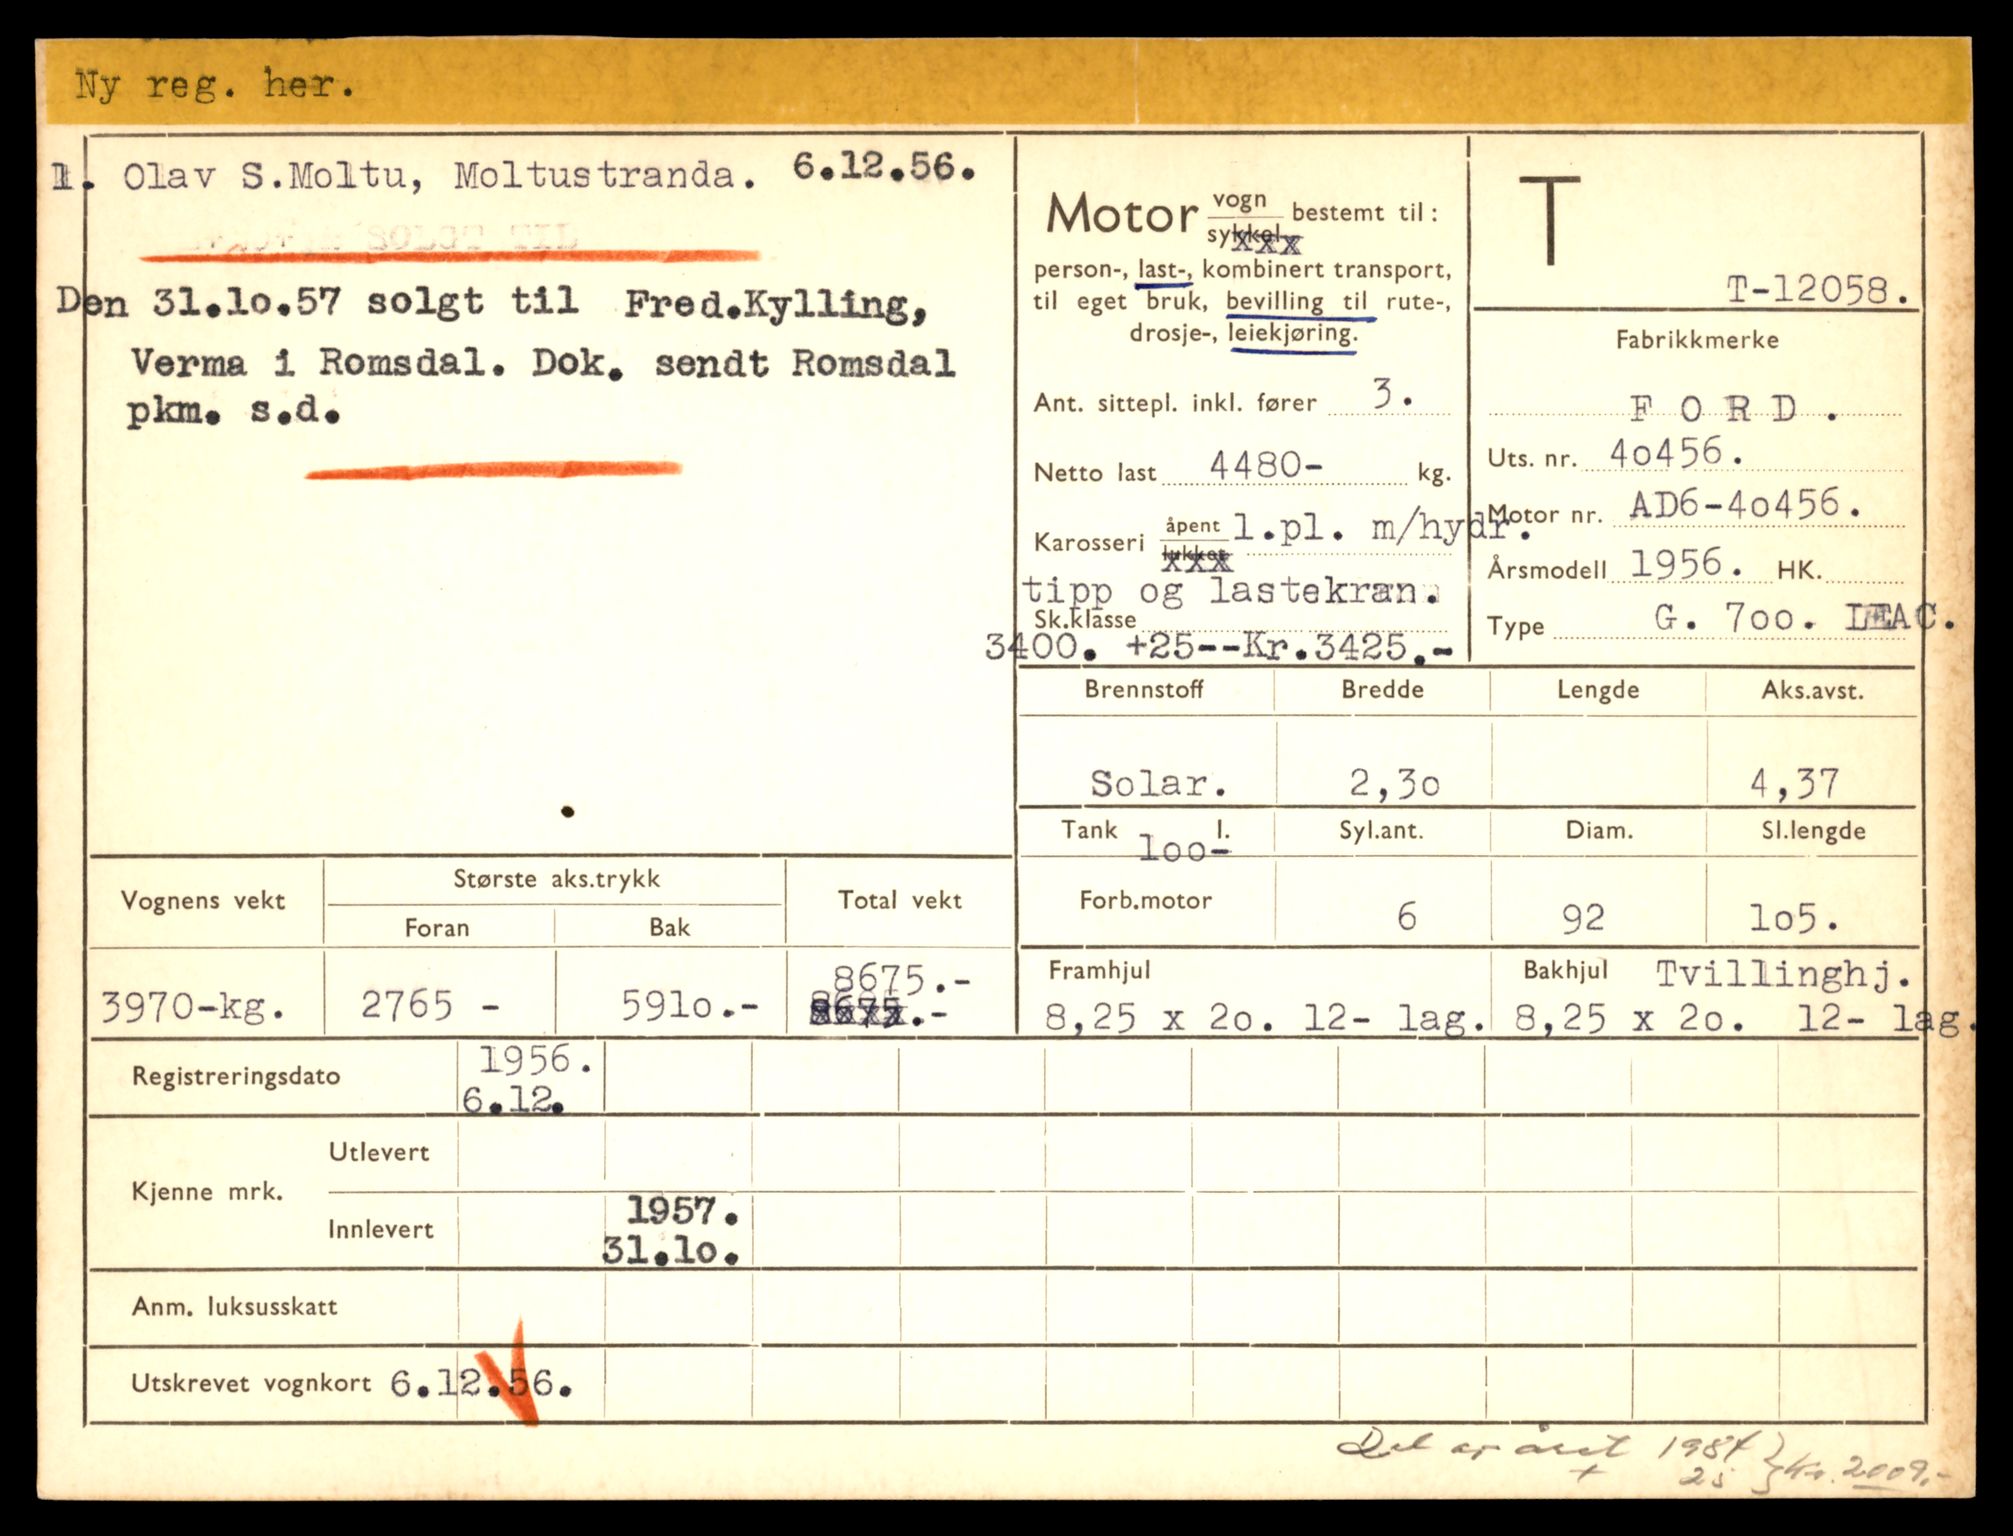 Ny reg. her.
1. Olav S.Moltu, Moltustranda. 6.12.56.
Den 31.lo.57 solgt til Fred.Kylling,
Verma i Romsdal. Dok. sendt Romsdal
pkm. s.d.
Motor vogn bestemt til:
sykkel
person-, last-, kombinert transport,
til eget bruk, bevilling til rute-,
drosje-, leiekjøring.
Ant. sittepl. inkl. fører 3.
Netto last 4480- kg.
Karosseri åpent l.pl. m/hydr.
lukket
tipp og lastekran.
Sk.klasse
3400. +25--Kr.3425.-
T
T-12058.
Fabrikkmerke
F O R D .
Uts. nr. 4o456.
Motor nr. AD6-4o456.
Årsmodell 1956. HK.
Type G. 7oo. LEAC.
Brennstoff Bredde Lengde Aks.avst.
Solar. 2,3o 4,37
Tank loo- l. Syl.ant. Diam. Sl.lengde
Forb.motor 6 92 lo5.
Framhjul Bakhjul Tvillinghj.
8,25 x 2o. 12- lag. 8,25 x 2o. 12- lag.
Vognens vekt Største aks.trykk Total vekt
Foran Bak
8675.-
3970-kg. 2765 - 591o.- 8675.-
Registreringsdato 1956.
6.12.
Kjenne mrk. Utlevert
Innlevert 1957.
31.lo.
Anm. luksusskatt
Utskrevet vognkort 6.12.56.
Del av året 1984 } Kr. 2009.-
+ 25